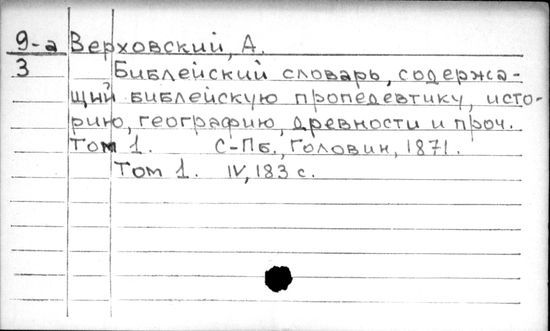 9-а Верховский, А.
3 Библейский словарь, содержа-
щий библейскую пропедевтику, исто-
рию, географию, древности и проч.
Том 1. С-Пб., Головин, 1871.
Том 1. IV, 183 с.